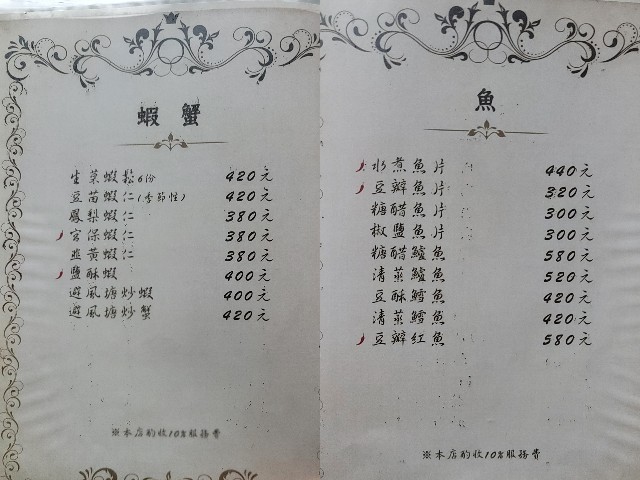 蝦 蟹
生菜蝦鬆6份 420元
豆苗蝦仁(季節性) 420元
鳳梨蝦仁 380元
宮保蝦仁 380元
韭黃蝦仁 380元
鹽酥蝦 400元
避風塘炒蝦 400元
避風塘炒蟹 420元
※本店酌收10%服務費
魚
水煮魚片 440元
豆瓣魚片 320元
糖醋魚片 300元
椒鹽魚片 300元
糖醋鱸魚 580元
清蒸鱸魚 520元
豆酥鱈魚 420元
清蒸鱈魚 420元
豆瓣紅魚 580元
※本店酌收10%服務費